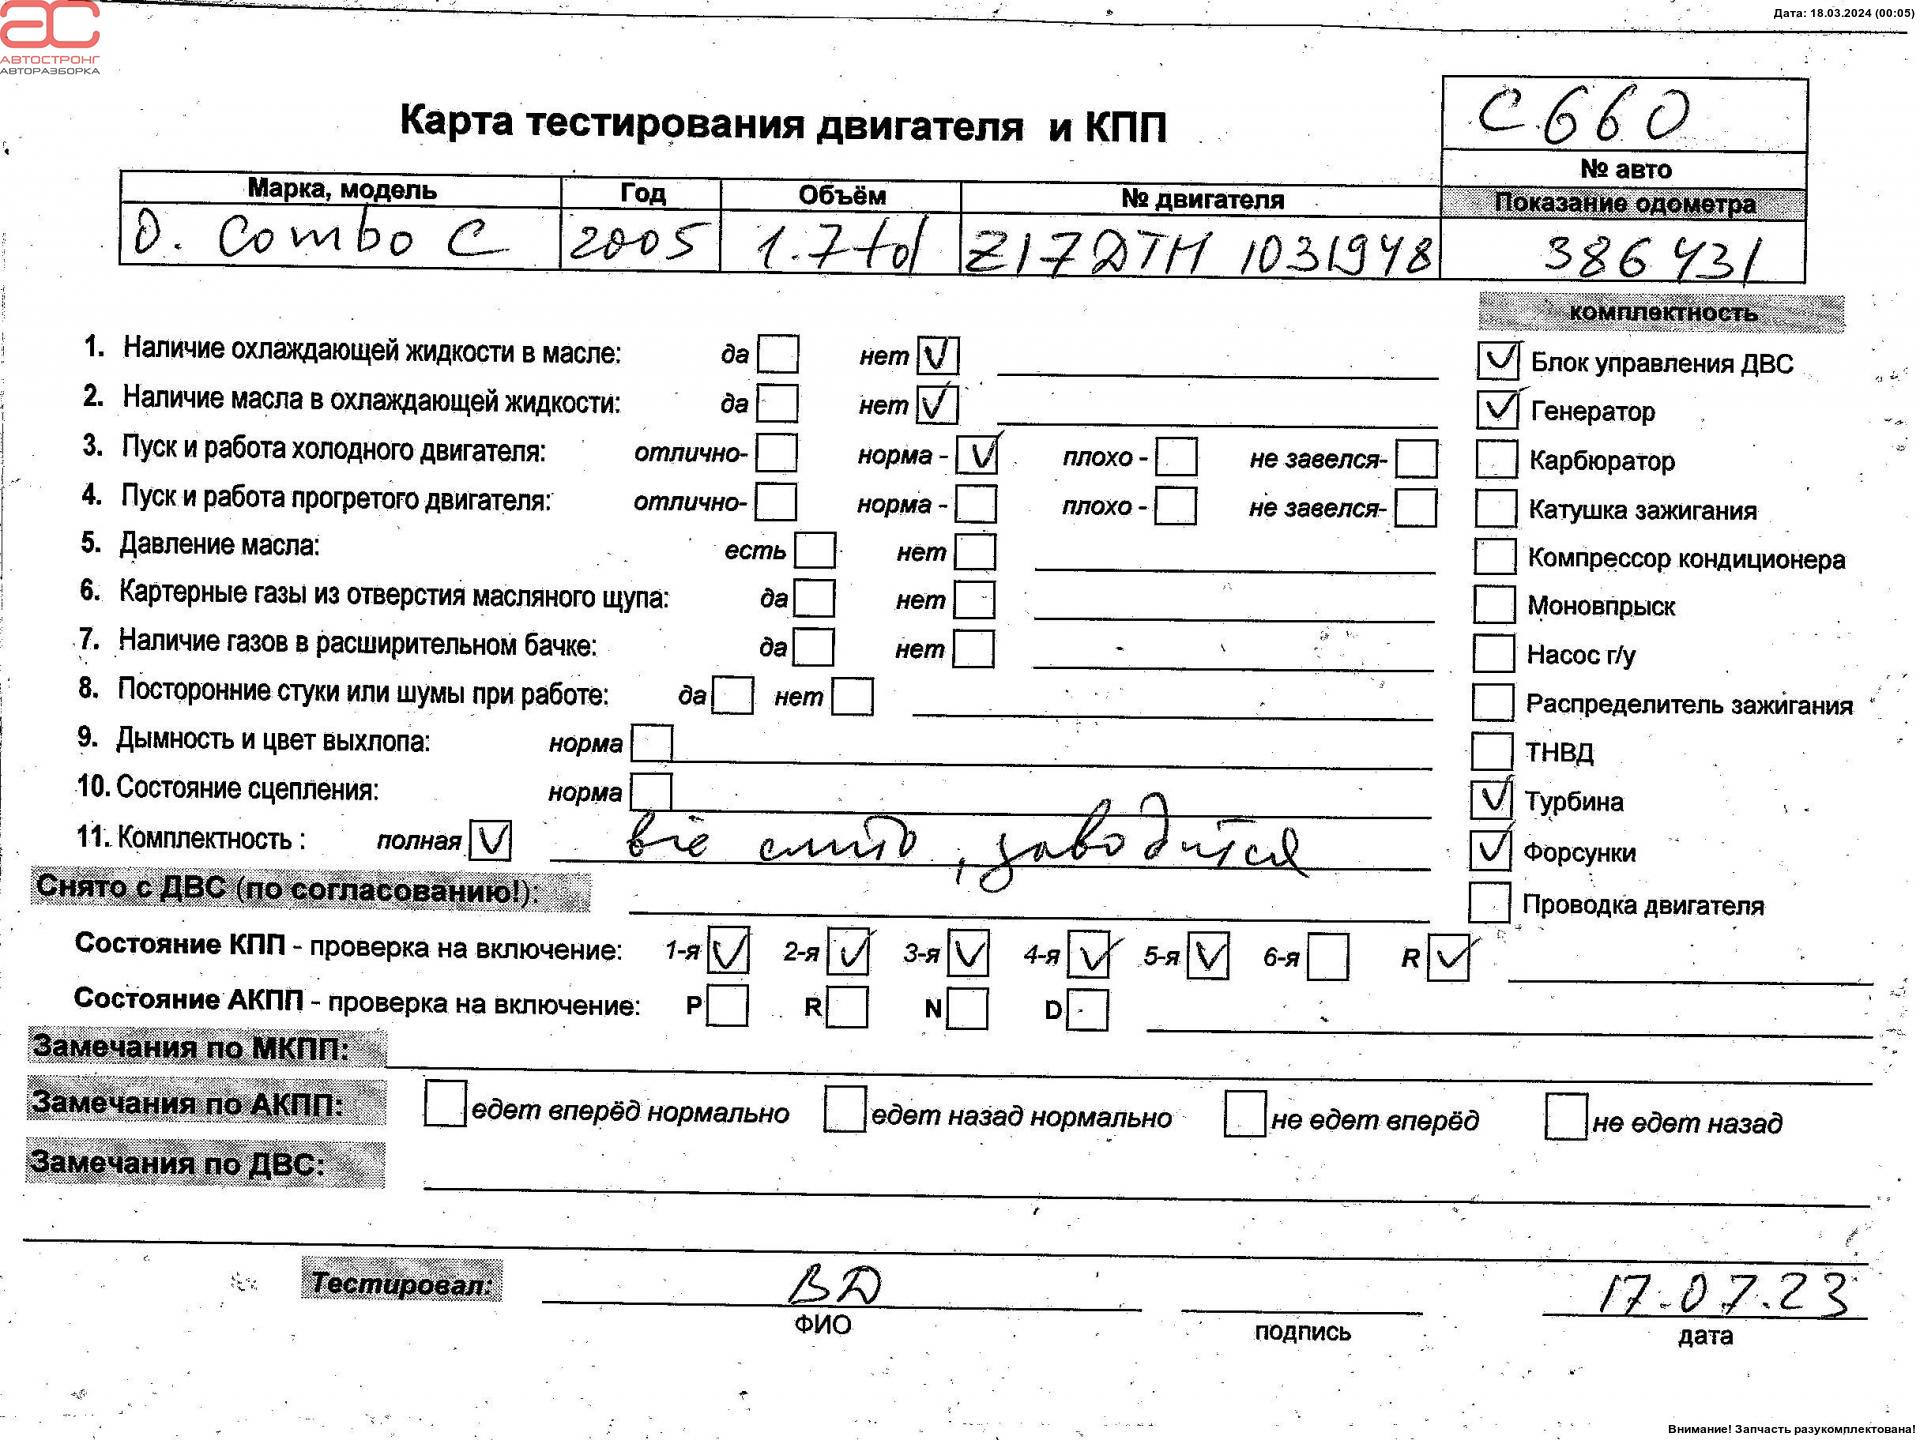 Дата: 18.03.2024 (00:05)
АС
АВТОСТРОНГ
АВТОРАЗБОРКА
Карта тестирования двигателя и КПП
С660
№ авто
Марка, модель Год Объём № двигателя Показание одометра
O. Combo C 2005 1.7td Z17DTH 1031948 386431
комплектность
1. Наличие охлаждающей жидкости в масле: да нет ✓
Блок управления ДВС ✓
2. Наличие масла в охлаждающей жидкости: да нет ✓
Генератор ✓
3. Пуск и работа холодного двигателя: отлично- норма - ✓ плохо - не завелся-
Карбюратор
4. Пуск и работа прогретого двигателя: отлично- норма - плохо - не завелся-
Катушка зажигания
5. Давление масла: есть нет
Компрессор кондиционера
6. Картерные газы из отверстия масляного щупа: да нет
Моновпрыск
7. Наличие газов в расширительном бачке: да нет
Насос г/у
8. Посторонние стуки или шумы при работе: да нет
Распределитель зажигания
9. Дымность и цвет выхлопа: норма
ТНВД
10. Состояние сцепления: норма
Турбина ✓
11. Комплектность : полная ✓ все слито, заводится
Форсунки ✓
Снято с ДВС (по согласованию!):
Проводка двигателя
Состояние КПП - проверка на включение: 1-я ✓ 2-я ✓ 3-я ✓ 4-я ✓ 5-я ✓ 6-я R ✓
Состояние АКПП - проверка на включение: P R N D
Замечания по МКПП:
Замечания по АКПП: едет вперёд нормально едет назад нормально не едет вперёд не едет назад
Замечания по ДВС:
Тестировал: ВД 17.07.23
ФИО подпись дата
Внимание! Запчасть разукомплектована!